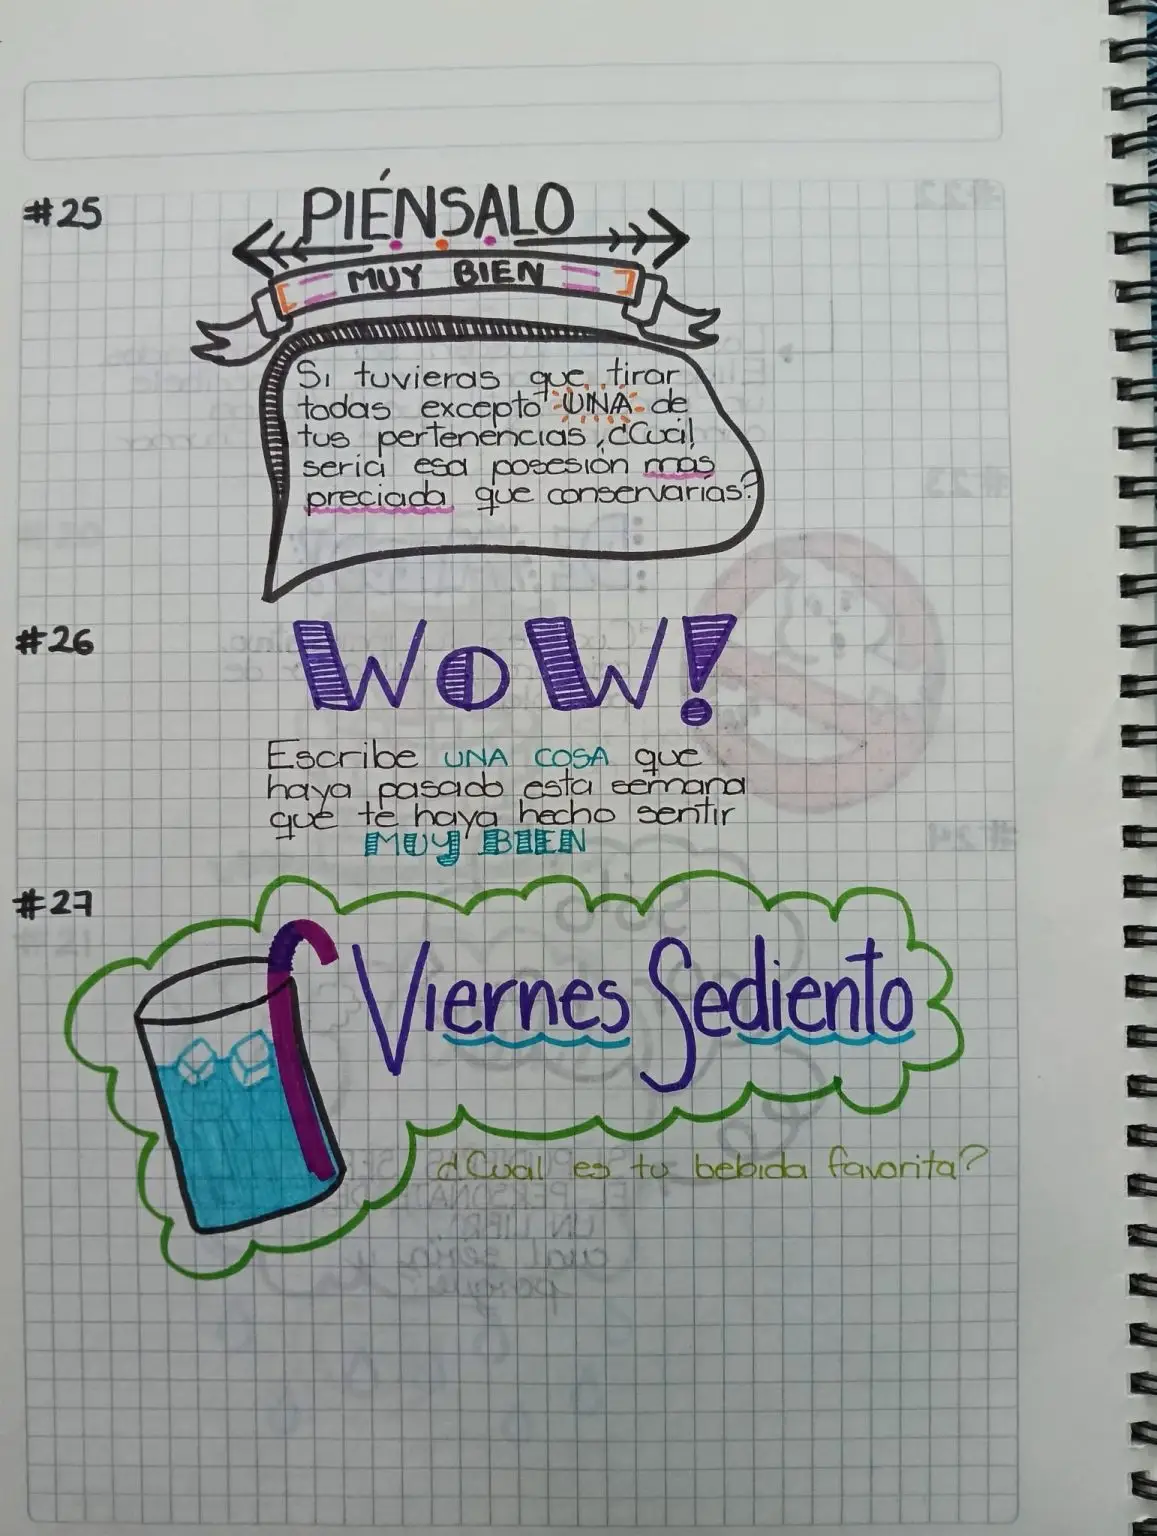 #25
PIÉNSALO
MUY BIEN
Si tuvieras que tirar
todas excepto UNA de
tus pertenencias, ¿Cuál
sería esa posesión más
preciada que conservarías?
#26
WOW!
Escribe UNA COSA que
haya pasado esta semana
que te haya hecho sentir
MUY BIEN
#27
Viernes Sediento
¿Cual es tu bebida favorita?